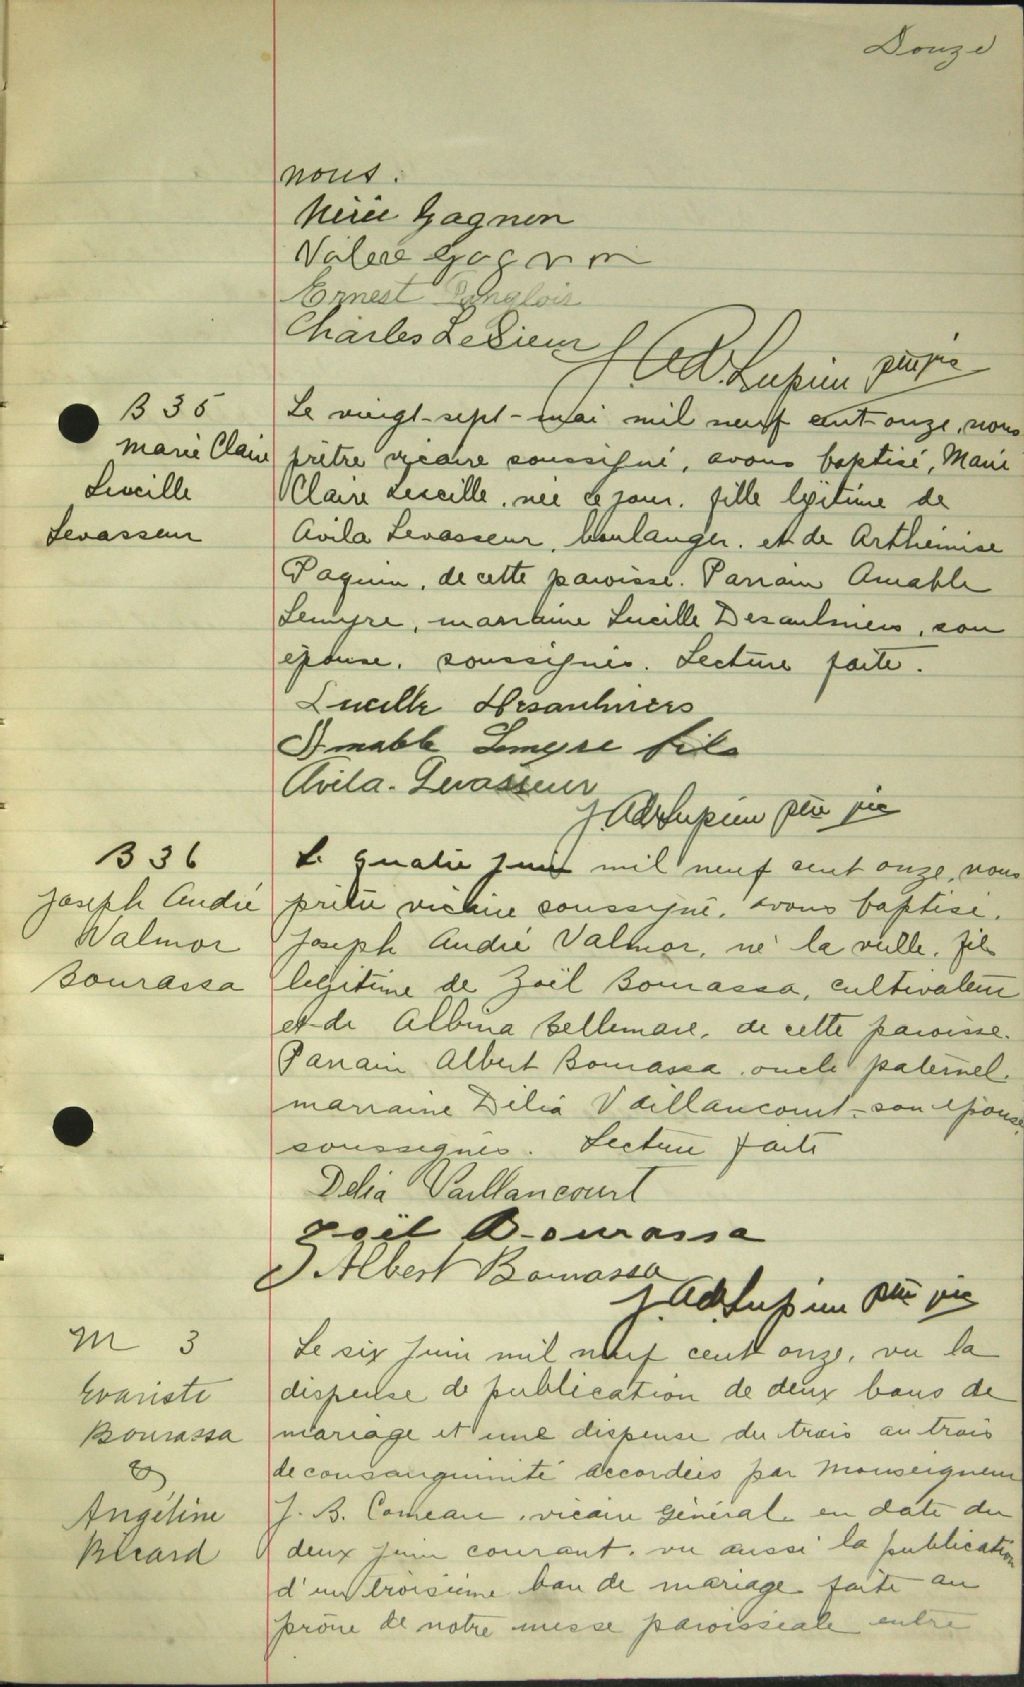 Douze
nous.
Nérée Gagnon
Valere Gagnon
Ernest Langlois
Charles LeSieur
J. Ad. Lupien ptre vic
B 35
Marie Claire
Lucille
Levasseur
Le vingt-sept-mai mil neuf cent onze, nous
prêtre vicaire soussigné, avons baptisé, Marie
Claire Lucille, née ce jour, fille légitime de
Avila Levasseur, boulanger, et de Arthémise
Paquin, de cette paroisse. Parrain Amable
Lemyre, marraine Lucille Desaulniers, son
épouse, soussignés. Lecture faite.
Lucille Desaulniers
Amable Lemyre fils
Avila Levasseur
J. Ad. Lupien ptre vic
B 36
Joseph André
Valmor
Bourassa
Le quatre juin mil neuf cent onze, nous
prêtre vicaire soussigné, avons baptisé,
Joseph André Valmor, né la veille, fils
légitime de Zoël Bourassa, cultivateur
et de Albina Bellemare, de cette paroisse.
Parrain Albert Bourassa, oncle paternel,
marraine Délia Vaillancourt, son épouse,
soussignés. Lecture faite
Delia Vaillancourt
Zoël Bourassa
Albert Bourassa
J. Ad. Lupien ptre vic
M 3
Evariste
Bourassa
&
Angéline
Ricard
Le six juin mil neuf cent onze, vu la
dispense de publication de deux bans de
mariage et une dispense du trois au trois
de consanguinité accordées par Monseigneur
J. B. Comeau, vicaire général, en date du
deux juin courant, vu aussi la publication
d'un troisième ban de mariage faite au
prône de notre messe paroissiale entre